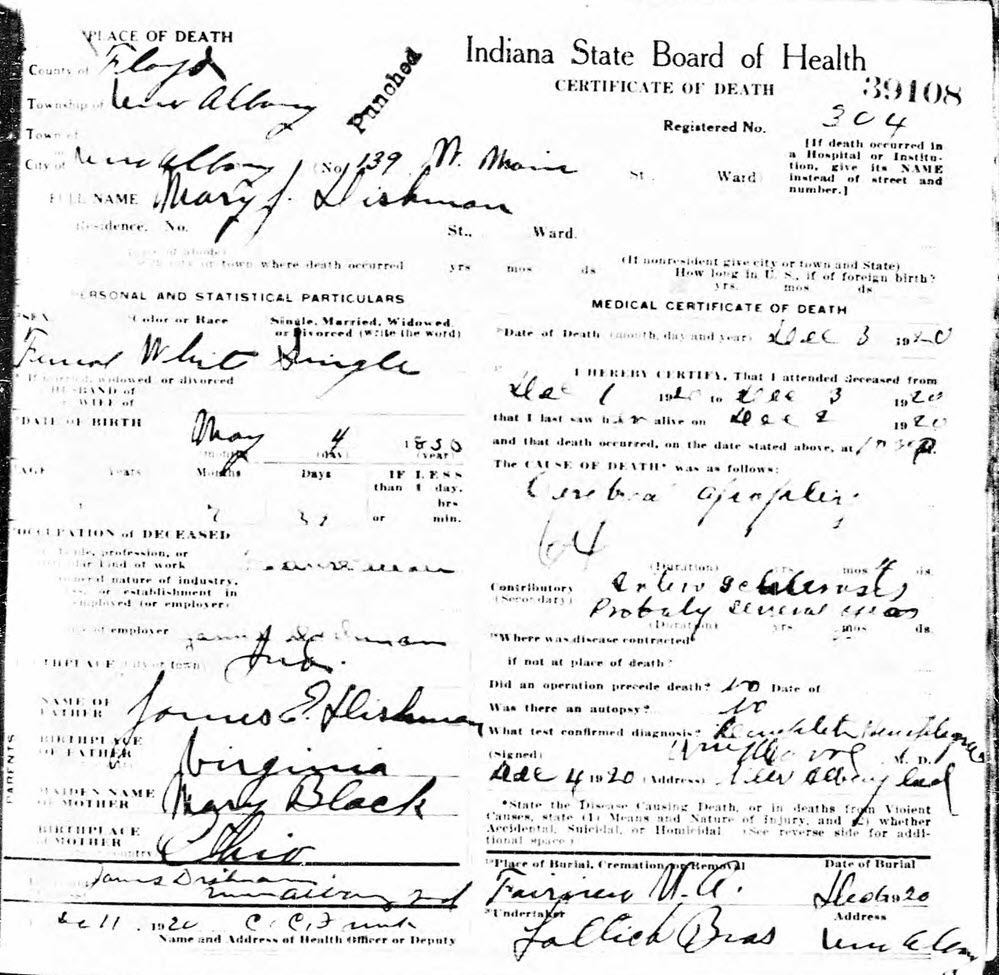 PLACE OF DEATH
Indiana State Board of Health
CERTIFICATE OF DEATH
39108
Punched
County of Floyd
Township of New Albany
Registered No. 304
Town of
City of New Albany (No 139 W. Main St. Ward)
[If death occurred in
a Hospital or Institu-
tion, give its NAME
instead of street and
number.]
FULL NAME Mary J. Dishman
Residence. No. St., Ward.
(Usual place of abode)
(If nonresident give city or town and State)
city or town where death occurred yrs mos ds
How long in U. S., if of foreign birth?
yrs. mos ds
PERSONAL AND STATISTICAL PARTICULARS
SEX Color or Race Single, Married, Widowed,
or Divorced (write the word)
Femal White Single
If married, widowed or divorced
HUSBAND of
or WIFE of
DATE OF BIRTH
May 4 1850
(month) (day) (year)
AGE Years Months Days IF LESS
than 1 day,
hrs
or min.
OCCUPATION of DECEASED
Trade, profession, or
particular kind of work
general nature of industry,
or establishment in
employed (or employer)
of employer
BIRTHPLACE (city or town) Ind.
NAME OF
FATHER James E. Dishman
BIRTHPLACE
OF FATHER Virginia
PARENTS
MAIDEN NAME
OF MOTHER Mary Black
BIRTHPLACE
OF MOTHER Ohio
country
James Dishman
New Albany Ind
De 11 1920 C. C. Funk
Name and Address of Health Officer or Deputy
MEDICAL CERTIFICATE OF DEATH
Date of Death (month, day and year) Dec 3 1920
I HEREBY CERTIFY, That I attended deceased from
Dec 1 1920 to Dec 3 1920
that I last saw her alive on Dec 2 1920
and that death occurred, on the date stated above, at
The CAUSE OF DEATH* was as follows:
Cerebral apoplexy
64
(Duration) yrs mos ds.
Contributory Arterio Schlerosis
(Secondary) Probaly several years
(Duration) yrs mos ds.
Where was disease contracted
if not at place of death?
Did an operation precede death? No Date of
Was there an autopsy? No
What test confirmed diagnosis? Complete Hemiplegia
(Signed) M. D.
Dec 4 1920 (Address) New Albany Ind
*State the Disease Causing Death, or in deaths from Violent
Causes, state (1) Means and Nature of Injury, and (2) whether
Accidental, Suicidal, or Homicidal (See reverse side for addi-
tional space)
Place of Burial, Cremation or Removal Date of Burial
Fairview N. A. Dec 6 1920
Undertaker Address
Bros New Alban